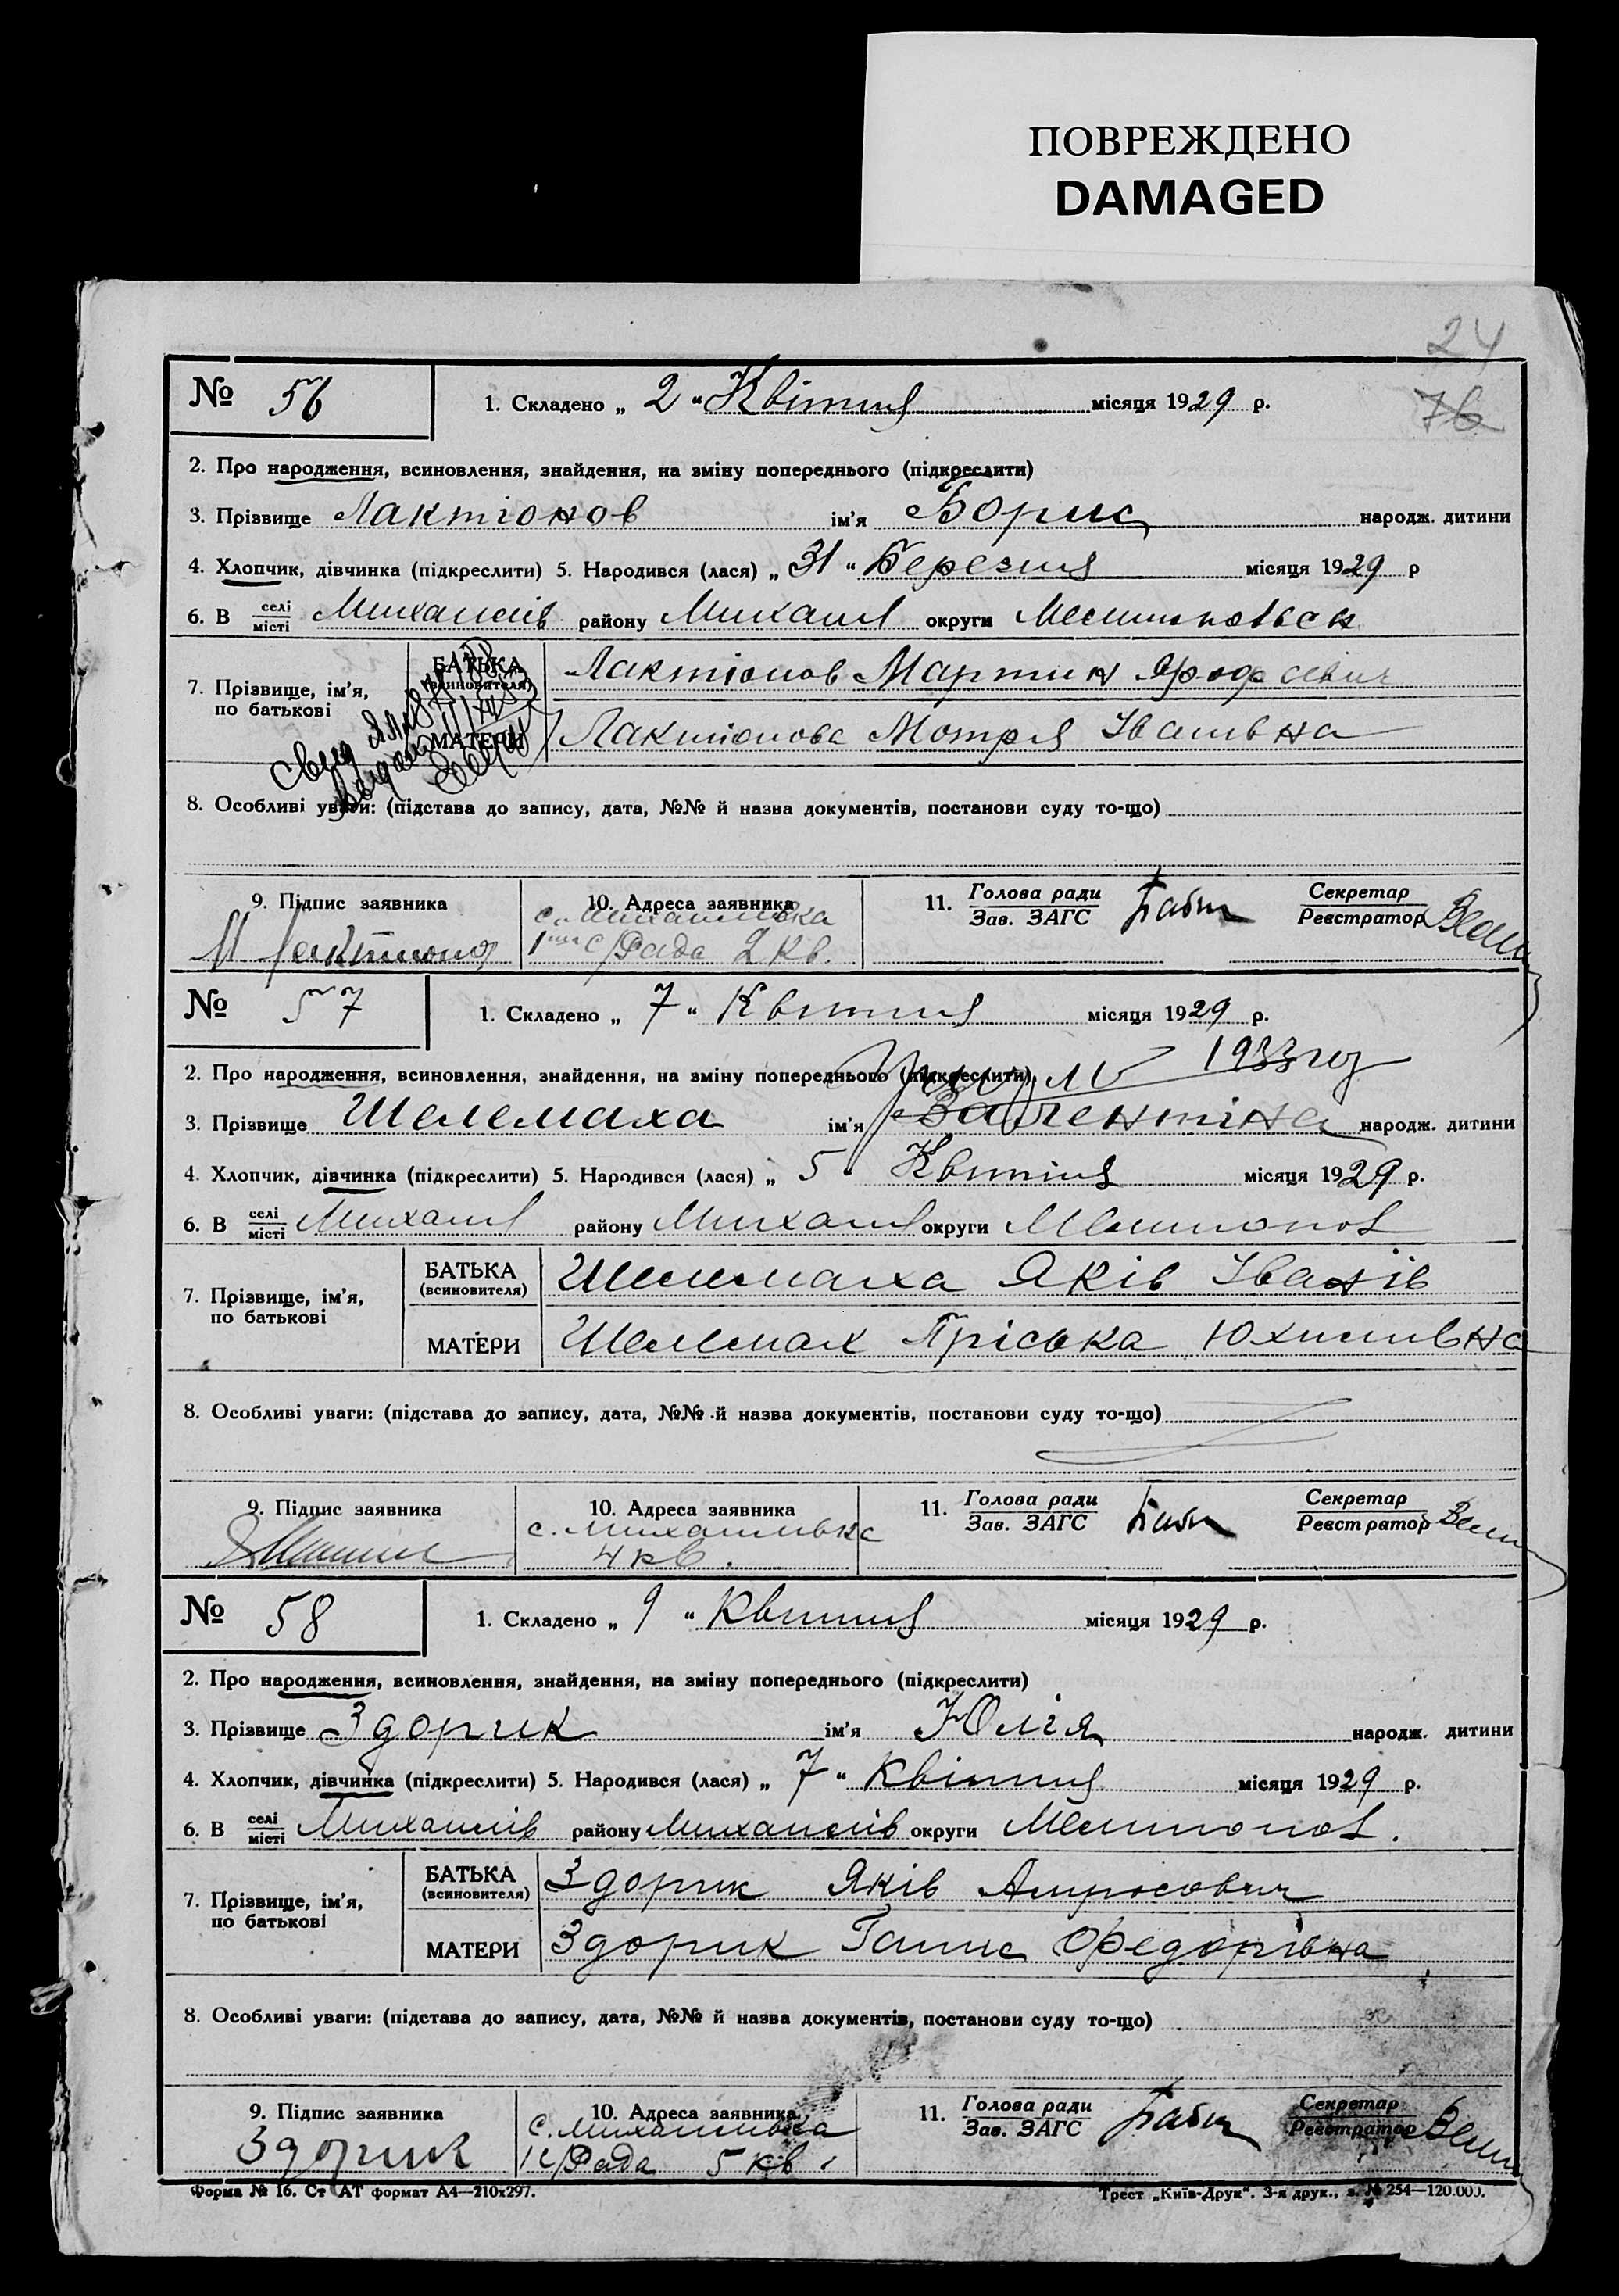 ПОВРЕЖДЕНО
DAMAGED
24
76
№ 56
1. Складено „ 2 “ Квітня місяця 1929 р.
2. Про народження, всиновлення, знайдення, на зміну попереднього (підкреслити)
3. Прізвище Лактіонов ім'я Борис народж. дитини
4. Хлопчик, дівчинка (підкреслити) 5. Народився (лася) „ 31 “ Березня місяця 1929 р
6. В селі місті Михайлів району Михайл округи
7. Прізвище, ім'я, по батькові
БАТЬКА (всиновителя) Лактіонов Мартин
МАТЕРИ Лактіонова Мотря Іванівна
8. Особливі уваги: (підстава до запису, дата, №№ й назва документів, постанови суду то-що)
9. Підпис заявника
10. Адреса заявника
с. Михайлівка
с/Рада 2 кв.
11. Голова ради Зав. ЗАГС
Секретар Реєстратор
№ 57
1. Складено „ 7 “ Квітня місяця 1929 р.
1933
2. Про народження, всиновлення, знайдення, на зміну попереднього (підкреслити)
3. Прізвище Шелемаха ім'я Валентіна народж. дитини
4. Хлопчик, дівчинка (підкреслити) 5. Народився (лася) „ 5 “ Квітня місяця 1929 р.
6. В селі місті Михайл району Михайл округи Мелитопол
7. Прізвище, ім'я, по батькові
БАТЬКА (всиновителя) Шелемаха Яків Іванів
МАТЕРИ Шелемах Пріська Юхимівна
8. Особливі уваги: (підстава до запису, дата, №№ й назва документів, постанови суду то-що)
9. Підпис заявника
10. Адреса заявника
с. Михайлівка
4 кв.
11. Голова ради Зав. ЗАГС
Секретар Реєстратор
№ 58
1. Складено „ 9 “ Квітня місяця 1929 р.
2. Про народження, всиновлення, знайдення, на зміну попереднього (підкреслити)
3. Прізвище Здорик ім'я Юлія народж. дитини
4. Хлопчик, дівчинка (підкреслити) 5. Народився (лася) „ 7 “ Квітня місяця 1929 р.
6. В селі місті Михайлів району Михайлів округи Мелитопол.
7. Прізвище, ім'я, по батькові
БАТЬКА (всиновителя) Здорик Яків Амросович
МАТЕРИ Здорик Ганна Федорівна
8. Особливі уваги: (підстава до запису, дата, №№ й назва документів, постанови суду то-що)
9. Підпис заявника
Здорик
10. Адреса заявника
с. Михайлівка
1 с/Рада 5 кв.
11. Голова ради Зав. ЗАГС
Секретар Реєстратор
Форма № 16. Ст АТ формат А4—210х297.
Трест „Київ-Друк“. 3-я друк., з. № 254—120.000.